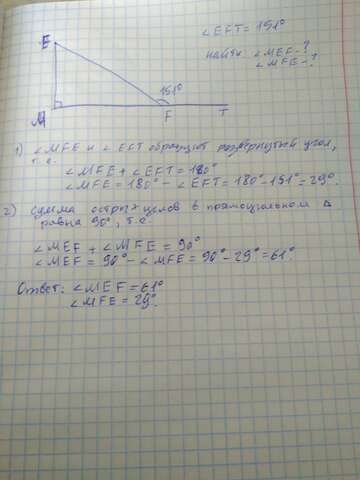 ∠EFT = 151°
найти: ∠MEF - ?
∠MFE - ?
E
151°
M
F
T
1) ∠MFE и ∠EFT образуют развернутый угол,
т.е.
∠MFE + ∠EFT = 180°
∠MFE = 180° - ∠EFT = 180° - 151° = 29°.
2) Сумма острых углов в прямоугольном Δ
равна 90°, т.е.
∠MEF + ∠MFE = 90°
∠MEF = 90° - ∠MFE = 90° - 29° = 61°.
Ответ: ∠MEF = 61°
∠MFE = 29°.